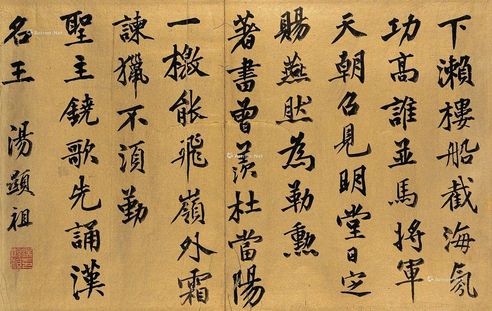 下瀨樓船截海氛
功高誰並馬將軍
天朝召見明堂日定
賜燕然為勒勳
著書曾羨杜當陽
一檄能飛嶺外霜
諫獵不須勤
聖主鐃歌先誦漢
名王
湯顯祖